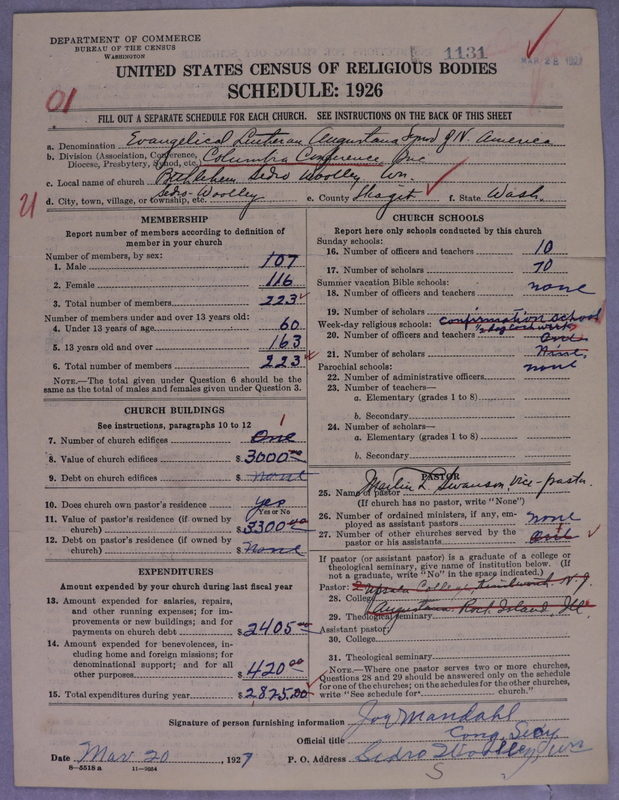 DEPARTMENT OF COMMERCE
BUREAU OF THE CENSUS
WASHINGTON
1131
MAR 28 1927
UNITED STATES CENSUS OF RELIGIOUS BODIES
SCHEDULE: 1926
01
FILL OUT A SEPARATE SCHEDULE FOR EACH CHURCH. SEE INSTRUCTIONS ON THE BACK OF THIS SHEET
a. Denomination Evangelical Lutheran Augustana Synod of N. America
b. Division (Association, Conference, Diocese, Presbytery, Synod, etc.) Columbia Conference Inc
c. Local name of church Bethlehem Sedro Woolley, Wn.
d. City, town, village, or township, etc. Sedro-Woolley e. County Skagit f. State Wash.
21
MEMBERSHIP
Report number of members according to definition of
member in your church
Number of members, by sex:
1. Male 107
2. Female 116
3. Total number of members 223
Number of members under and over 13 years old:
4. Under 13 years of age 60
5. 13 years old and over 163
6. Total number of members 223
NOTE.—The total given under Question 6 should be
the same as the total of males and females given under Question 3.
CHURCH BUILDINGS
See instructions, paragraphs 10 to 12
1
7. Number of church edifices One
8. Value of church edifices $ 3000.00
9. Debt on church edifices $ none
10. Does church own pastor's residence yes
Yes or No
11. Value of pastor's residence (if owned by
church) $ 3300.00
12. Debt on pastor's residence (if owned by
church) $ None
EXPENDITURES
Amount expended by your church during last fiscal year
13. Amount expended for salaries, repairs,
and other running expenses; for im-
provements or new buildings; and for
payments on church debt $ 2405.00
14. Amount expended for benevolences, in-
cluding home and foreign missions; for
denominational support; and for all
other purposes $ 420.00
15. Total expenditures during year $ 2825.00
CHURCH SCHOOLS
Report here only schools conducted by this church
Sunday schools:
16. Number of officers and teachers 10
17. Number of scholars 70
Summer vacation Bible schools:
18. Number of officers and teachers none
19. Number of scholars
Week-day religious schools: Confirmation School
1/2 day each week
20. Number of officers and teachers One
21. Number of scholars Nine
Parochial schools: none
22. Number of administrative officers
23. Number of teachers—
a. Elementary (grades 1 to 8)
b. Secondary
24. Number of scholars—
a. Elementary (grades 1 to 8)
b. Secondary
PASTOR
25. Name of pastor Martin L. Swanson, Vice-pastor
(If church has no pastor, write "None")
26. Number of ordained ministers, if any, em-
ployed as assistant pastors none
27. Number of other churches served by the
pastor or his assistants One
If pastor (or assistant pastor) is a graduate of a college or
theological seminary, give name of institution below. (If
not a graduate, write "No" in the space indicated.)
Pastor:
28. College Upsala College, Kenilworth N.J.
29. Theological seminary Augustana Rock Island, Ill.
Assistant pastor:
30. College
31. Theological seminary
NOTE.—Where one pastor serves two or more churches,
Questions 28 and 29 should be answered only on the schedule
for one of the churches; on the schedules for the other churches,
write "See schedule for church."
Signature of person furnishing information Joy Mandahl
Official title Cong. Secy
Date Mar 20, 1927 P. O. Address Sedro Woolley, Wn
8—5518 a 11—9924
S